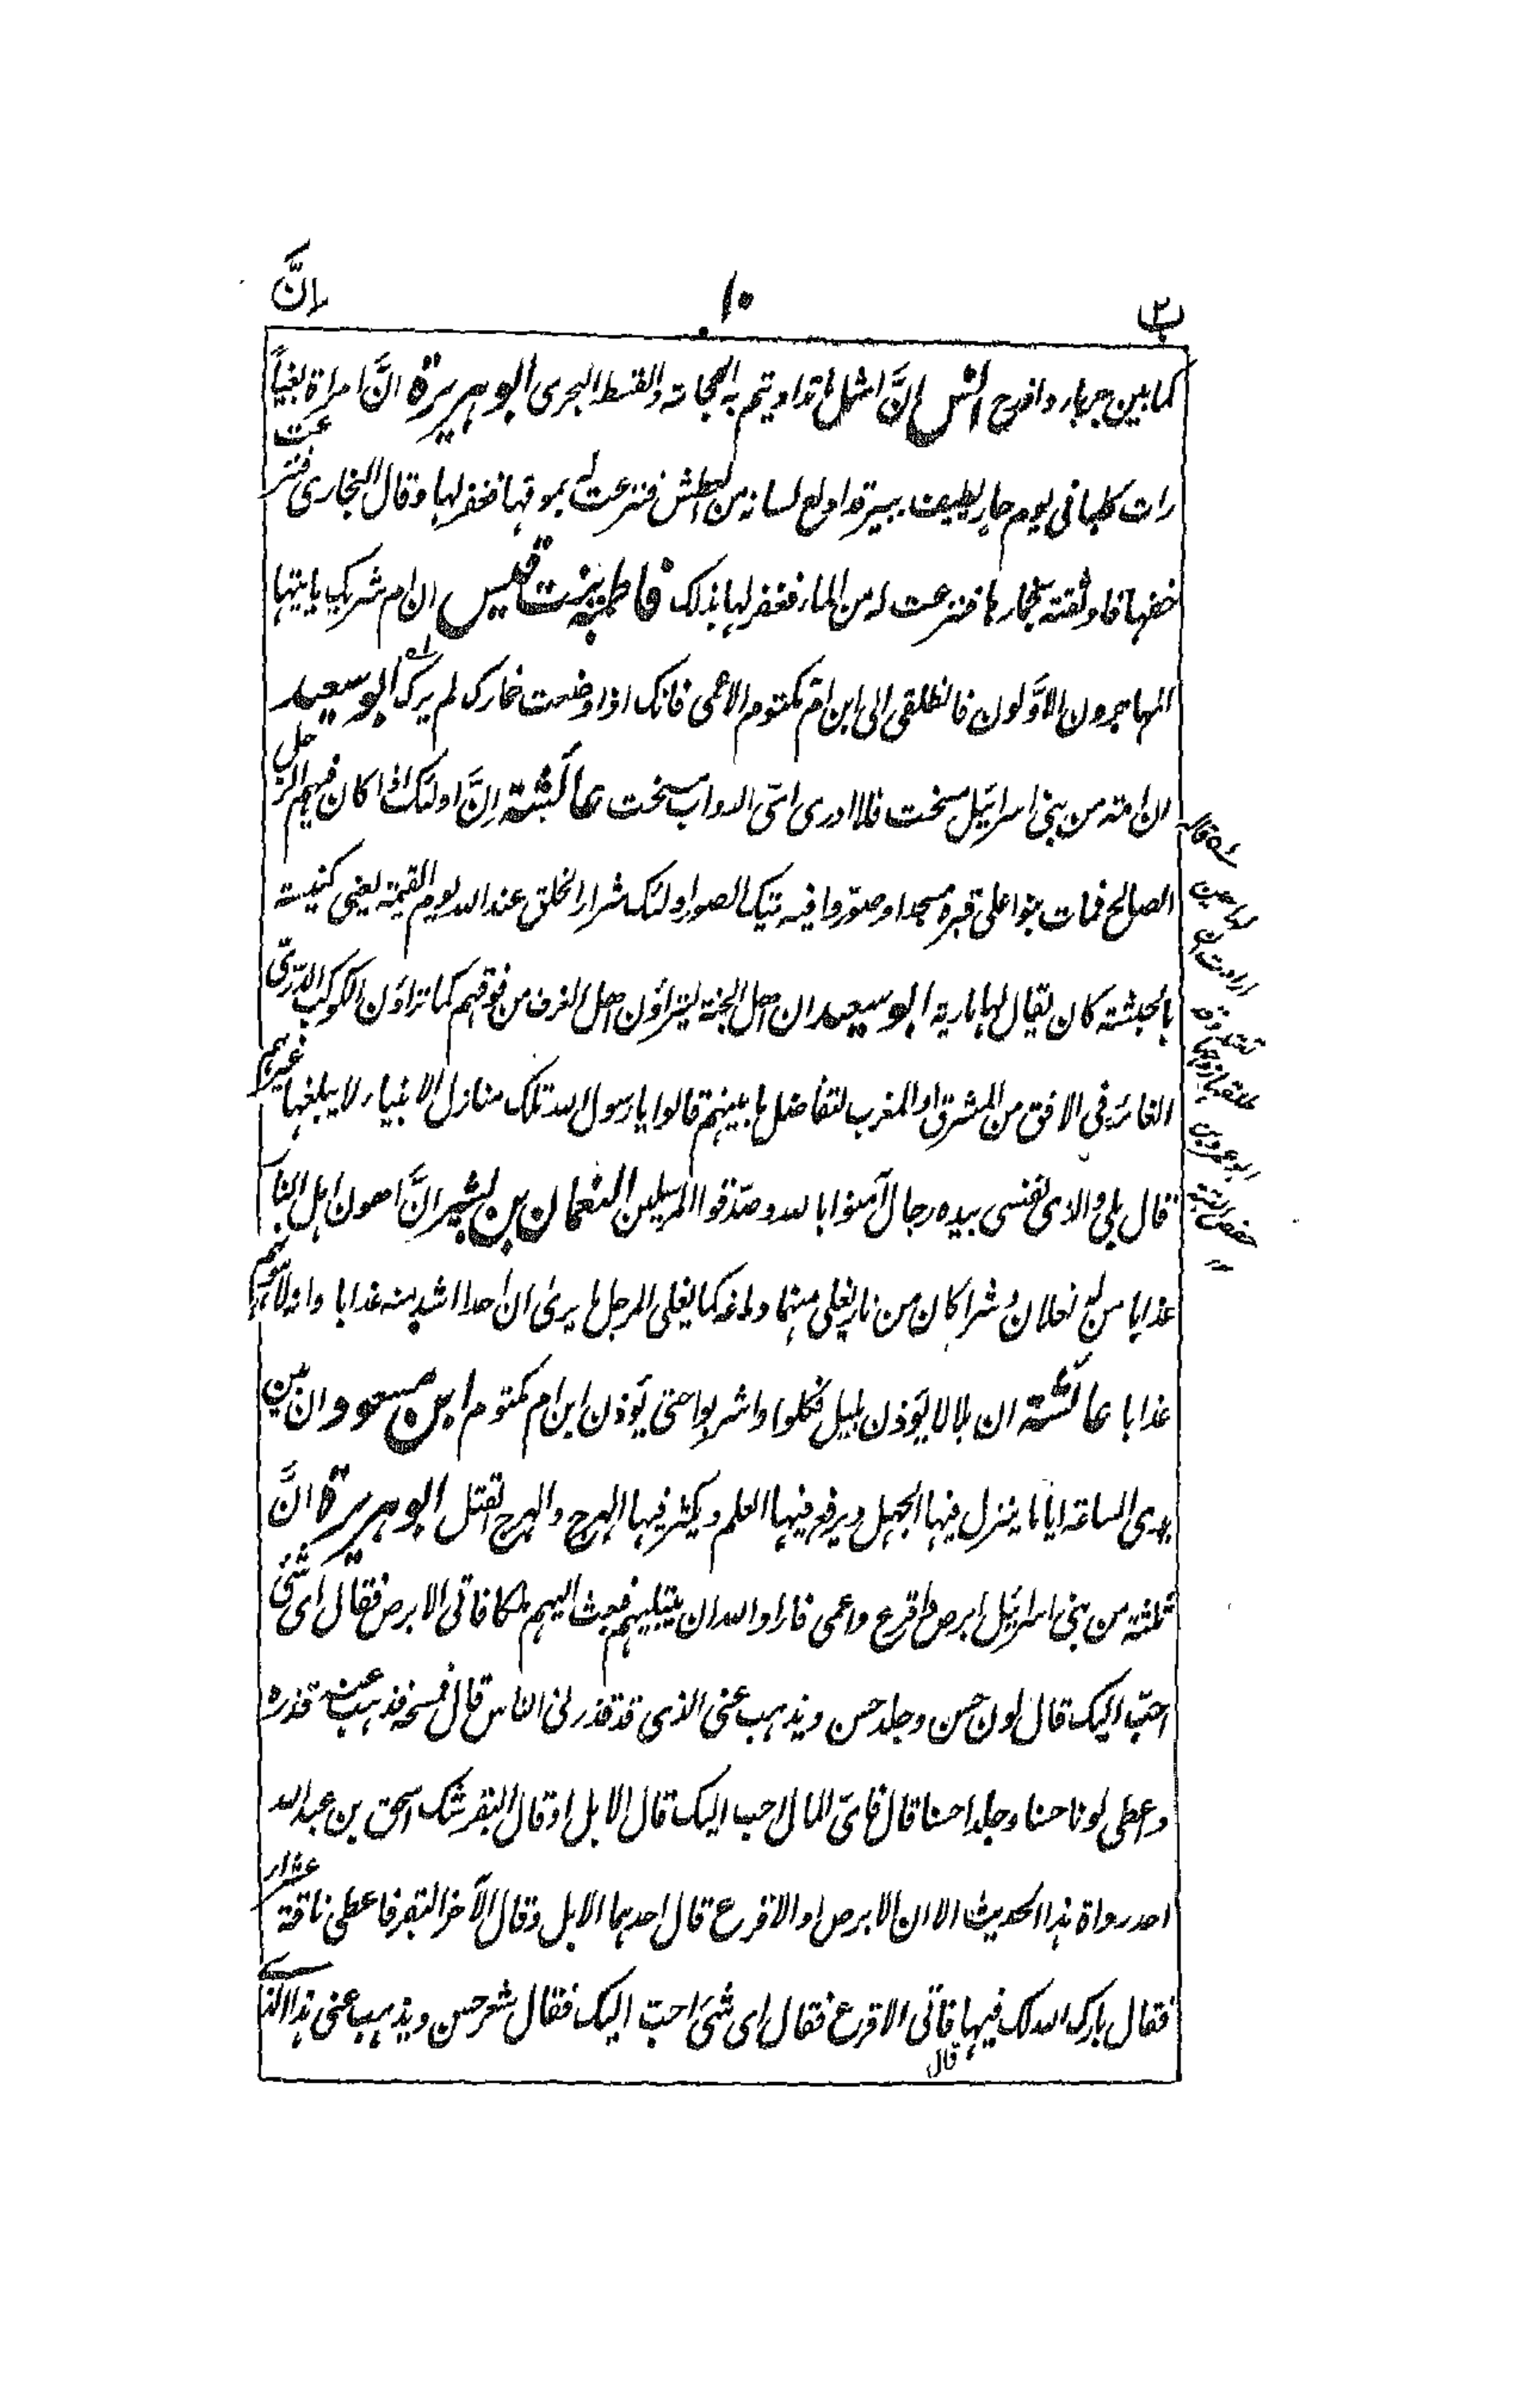 ب ٢ ١٠ اِنَّ
كما بين جرباء واذرح انس انَّ امثل ما تداويتم به الحجامة والقسط البحرى ابو هريرة انَّ امراة بغياً
رات كلبا فى يوم حار يطيف ببيرقد ادلع لسانه من العطش فنزعت له بموقها فغفر لها وقال البخارى فنزعت
خفها فاوثقته بخمارها فنزعت له من الماء فغفر لها بذلك فاطمة بنت قيس ان ام شريك ياتيها
المهاجرون الاوّلون فانطلقى الى ابن امّ مكتوم الاعمى فانك اذا وضعت خمارك لم يرك ابو سعيد
ان امة من بنى اسرائيل مسخت فلا ادرى اىّ الدواب مسخت عائشة اِنَّ اولئك اذا كان فيهم الرجل
الصالح فمات بنوا على قبره مسجدا وصوّروا فيه تيك الصور اولئك شرار الخلق عند الله يوم القيمة يعنى كنيسة
بالحبشة كان يقال لها مارية ابو سعيد ان اهل الجنة ليتراؤن اهل الغرف من فوقهم كما تراؤن الكوكب الدرّىّ
الغائر فى الافق من المشرق او المغرب لتفاضل ما بينهم قالوا يا رسول الله تلك منازل الانبياء لا يبلغها غيرهم
قال بلى والذى نفسى بيده رجال آمنوا بالله وصدّقوا المرسلين النعمان بن بشير انَّ اهون اهل النار
عذابا من له نعلان وشراكان من نار يغلى منهما دماغه كما يغلى المرجل ما يرى ان احدا اشد منه عذابا وانه لاهونهم
عذابا عائشة ان بلالا يؤذن بليل فكلوا واشربوا حتى يؤذن ابن ام مكتوم ابن مسعود ان بين
يدى الساعة اياما ينزل فيها الجهل ويرفع فيها العلم ويكثر فيها الهرج والهرج القتل ابو هريرة انَّ
ثلثة من بنى اسرائيل ابرص واقرع واعمى فاراد الله ان يبتليهم فبعث اليهم ملكا فاتى الابرص فقال اى شئ
احبّ اليك قال لون حسن وجلد حسن ويذهب عنى الذى قد قذرنى الناس قال فمسحه فذهب عنه قذره
وعطى لونا حسنا وجلدا حسنا قال فاىّ المال احب اليك قال الابل او قال البقر شك اسحق بن عبد الله
احد رواة هذا الحديث الا ان الابرص او الاقرع قال احدهما الابل وقال الآخر البقر فاعطى ناقة عشراء
فقال بارك الله لك فيها فاتى الاقرع فقال اى شئ احبّ اليك فقال شعر حسن ويذهب عنى هذا الذى
قال